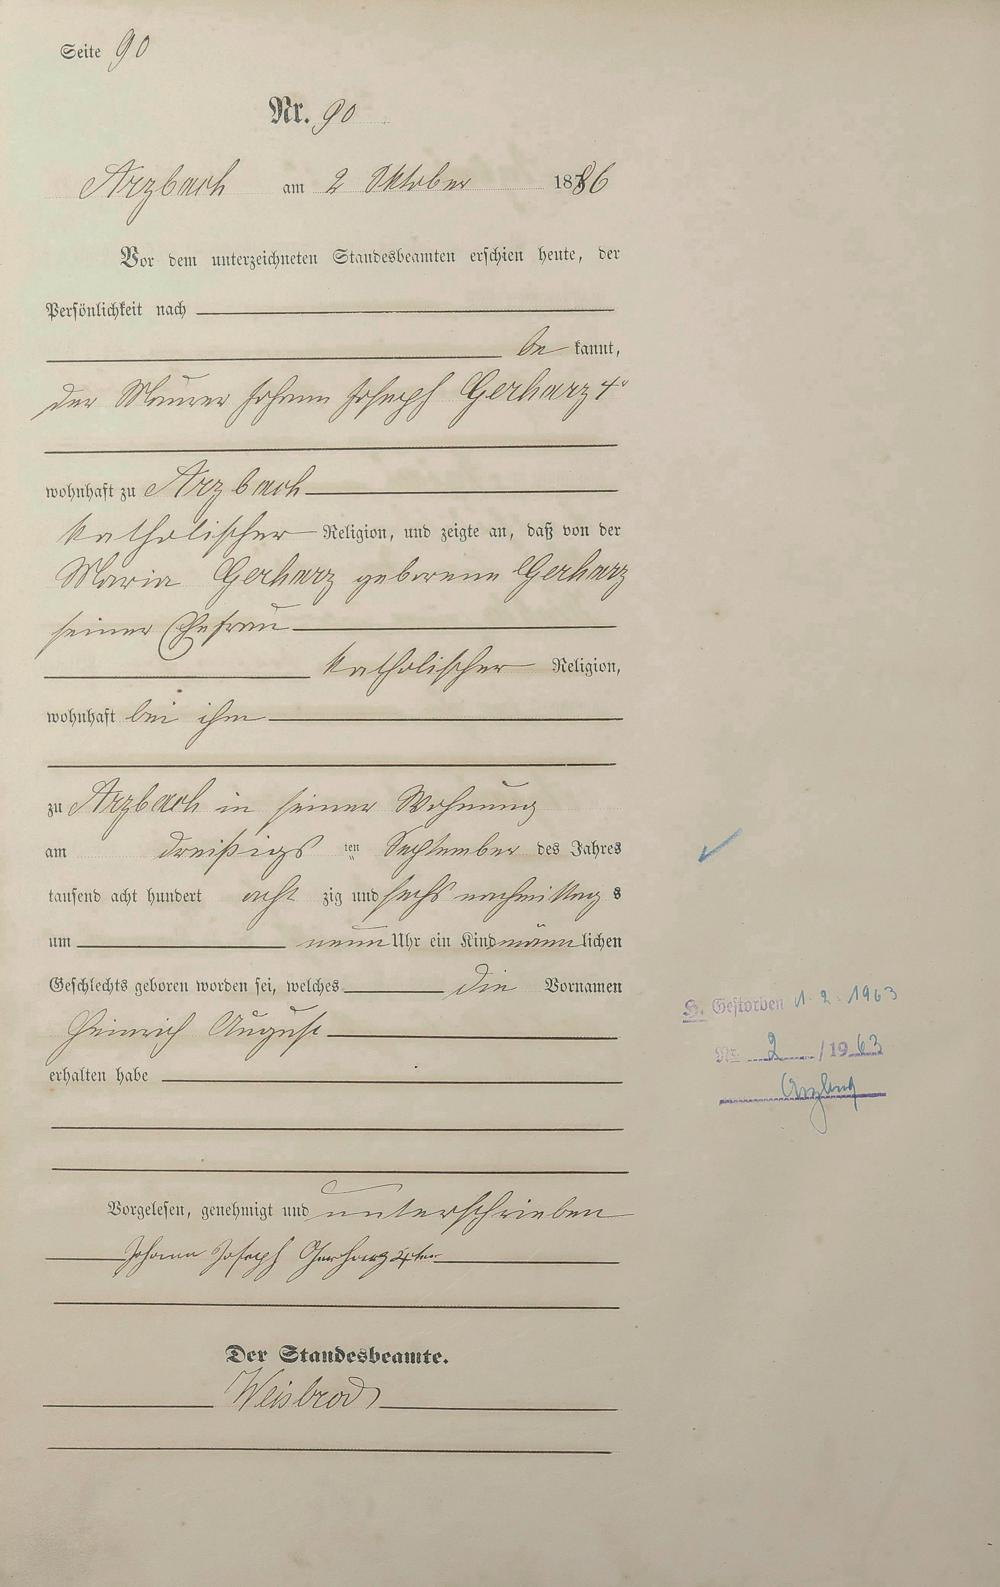 Seite 90
Nr. 90
Arzbach am 2 Oktober 1886
Vor dem unterzeichneten Standesbeamten erschien heute, der
Persönlichkeit nach
be kannt,
der Maurer Johann Joseph Gerharz 4r
wohnhaft zu Arzbach
katholischer Religion, und zeigte an, daß von der
Maria Gerharz geborene Gerharz
seiner Ehefrau
katholischer Religion,
wohnhaft bei ihm
zu Arzbach in seiner Wohnung
am dreißigs ten September des Jahres
tausend acht hundert acht zig und sechs nachmittag s
um neun Uhr ein Kind männ lichen
Geschlechts geboren worden sei, welches die Vornamen
Heinrich August
erhalten habe
Vorgelesen, genehmigt und unterschrieben
Johann Joseph Gerharz 4ter
Der Standesbeamte.
Weisbrod
H. Gestorben 1.2.1963
Nr. 2 /1963
Arzbach